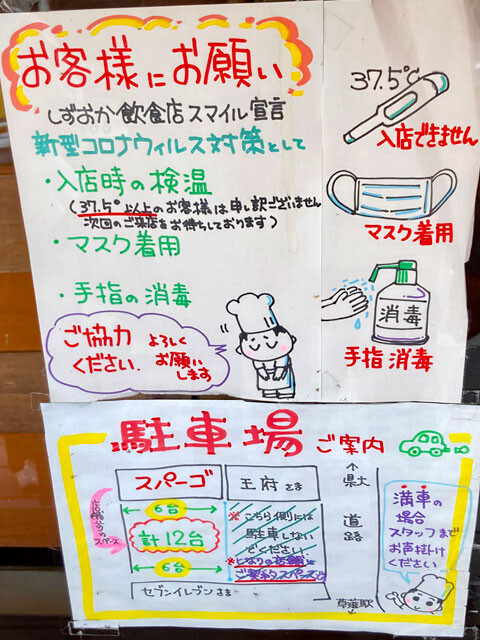 お客様にお願い
しずおか飲食店スマイル宣言
新型コロナウィルス対策として
・入店時の検温
(37.5°以上のお客様は申し訳ございません
次回のご来店をお待ちしております)
・マスク着用
・手指の消毒
ご協力
ください。
よろしく
お願い
します
37.5℃
入店できません
マスク着用
消毒
手指消毒
駐車場ご案内
スパーゴ
王府さま
6台
計12台
6台
※こちら側には
駐車しない
でください。
※となりの店舗
ご契約スペース
セブンイレブンさま
↑
県大
道路
草薙駅
満車の
場合
スタッフまで
お声掛け
ください